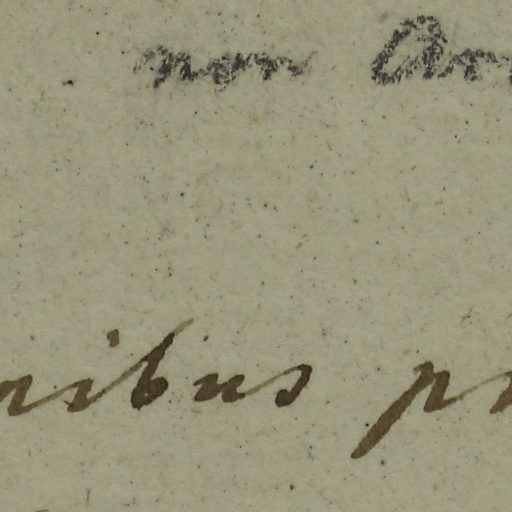 non Ar
nibus pr